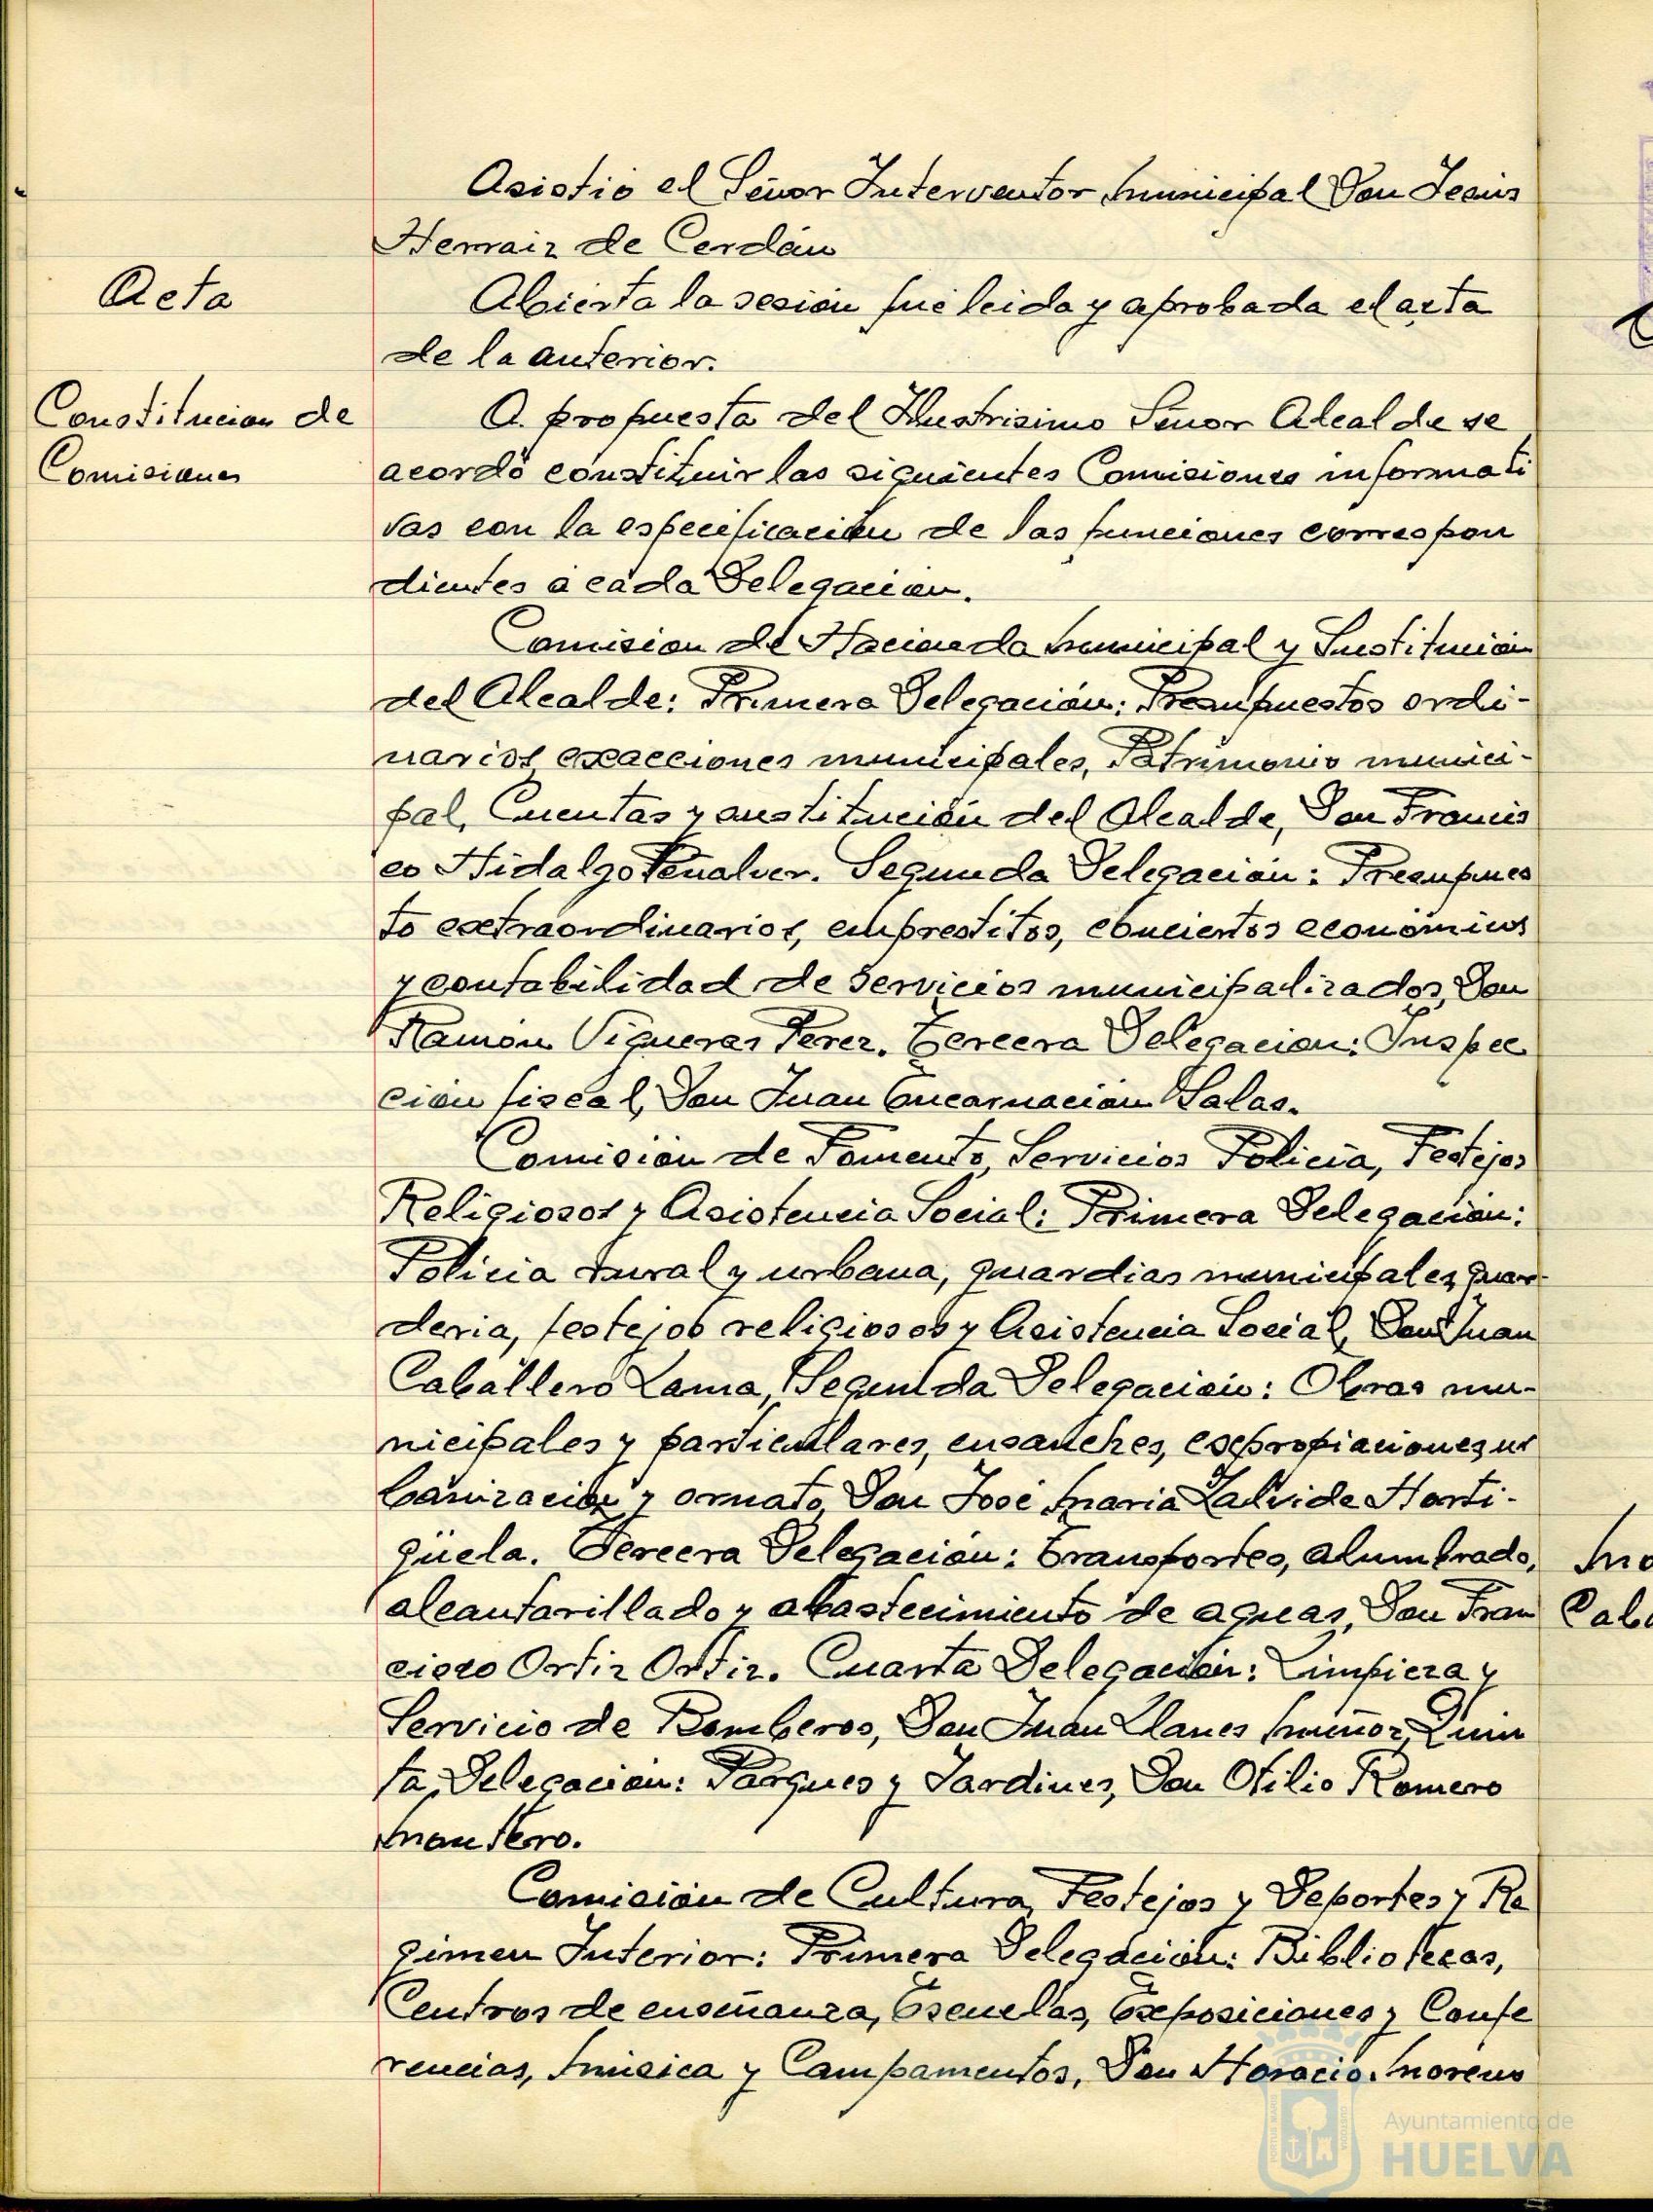 Asistió el Señor Interventor Municipal Don Jesús
Herraiz de Cerdán
Acta
Abierta la sesión fué leida y aprobada el acta
de la anterior.
Constitucion de
Comisiones
A propuesta del Ilustrisimo Señor Alcalde se
acordó constituir las siguientes Comisiones informati
vas con la especificación de las funciones correspon
dientes a cada Delegación.
Comision de Hacienda Municipal y Sustitución
del Alcalde: Primera Delegación: Presupuestos ordi-
narios, exacciones municipales, Patrimonio munici-
pal, Cuentas y sustitución del Alcalde, Don Francis
co Hidalgo Peñalver. Segunda Delegación: Presupues
to extraordinarios, emprestitos, conciertos económicos
y contabilidad de servicios municipalizados, Don
Ramón Vigueras Perez. Tercera Delegacion: Inspec
ción fiscal, Don Juan Encarnación Salas.
Comisión de Fomento, Servicios Policia, Festejos
Religiosos y Asistencia Social: Primera Delegación:
Policia rural y urbana, guardias municipales, guar-
deria, festejos religiosos y Asistencia Social, Don Juan
Caballero Lama, Segunda Delegación: Obras mu-
nicipales y particulares, ensanches, expropiaciones, ur
banización y ornato, Don José Maria Zalvide Horti-
güela. Tercera Delegación: Transportes, alumbrado,
alcantarillado y abastecimiento de aguas, Don Fran
cisco Ortiz Ortiz. Cuarta Delegación: Limpieza y
Servicio de Bomberos, Don Juan Llanes Muñoz, Quin
ta, Delegacion: Parques y Jardines, Don Otilio Romero
Montero.
Comisión de Cultura, Festejos y Deportes y Re
gimen Interior: Primera Delegación: Bibliotecas,
Centros de enseñanza, Escuelas, Exposiciones y Confe
rencias, Música y Campamentos, Don Horacio Moreno
Ayuntamiento de
HUELVA